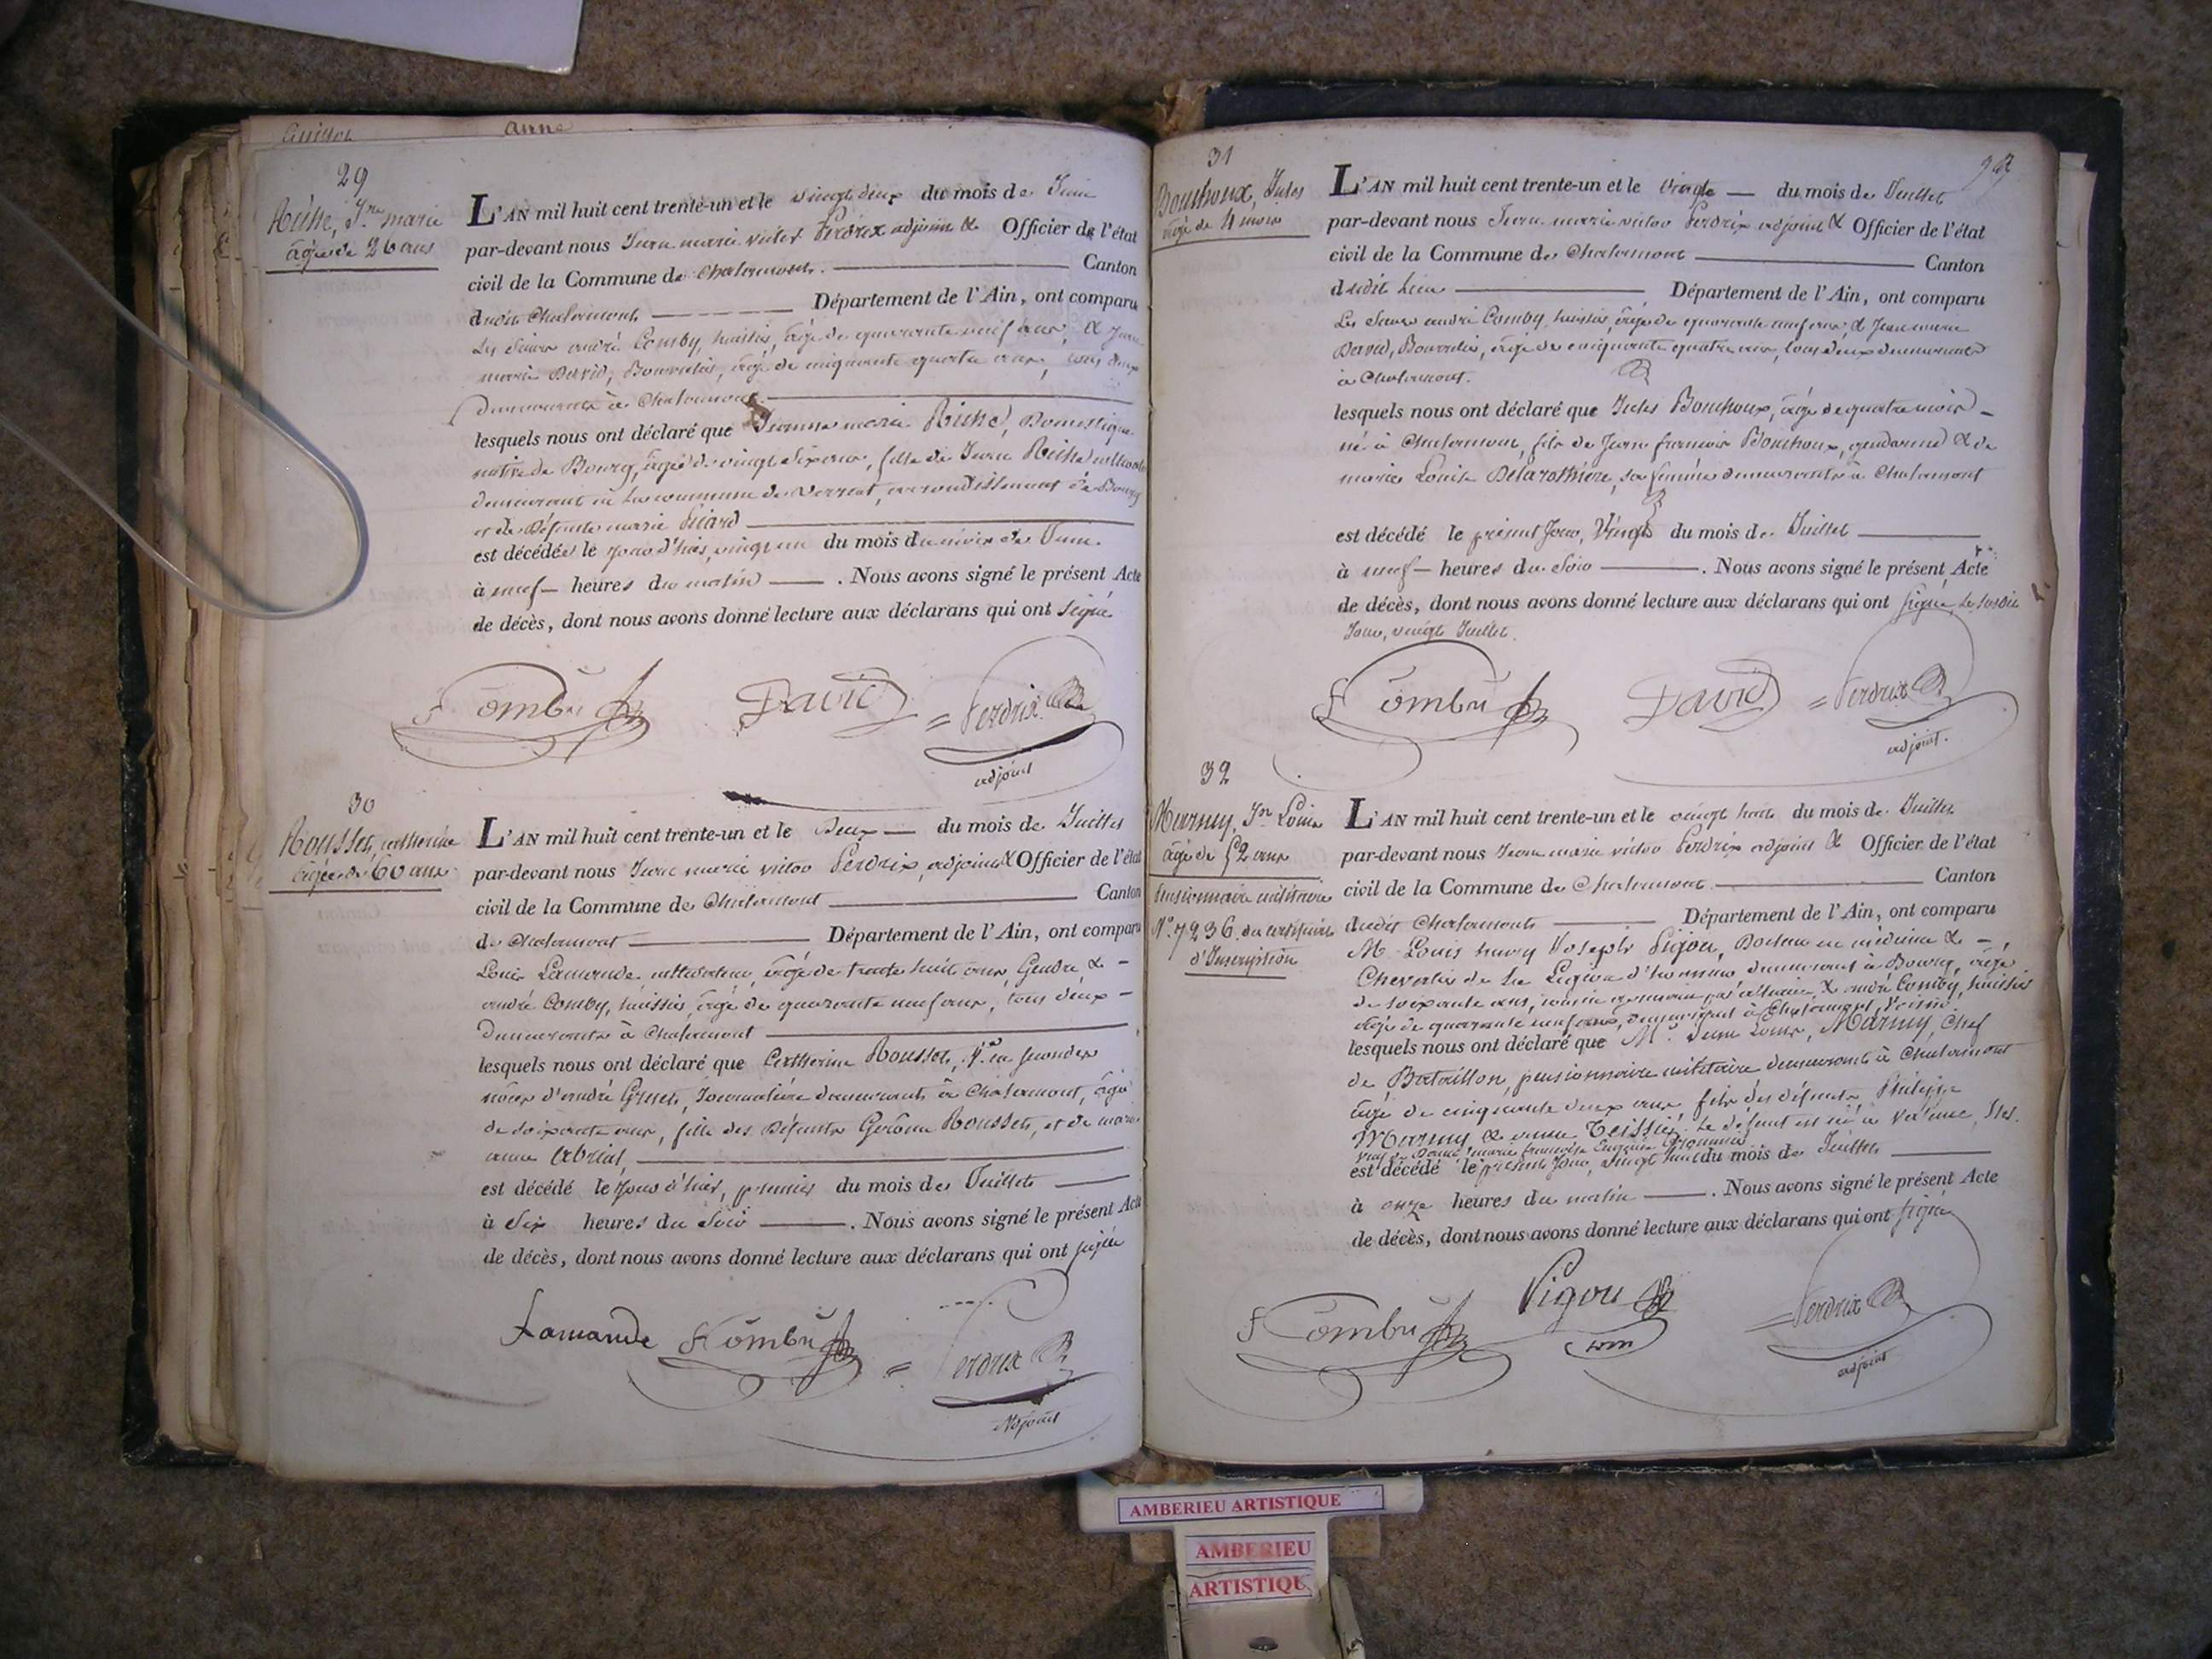 anne
29
Riche, Jne marie
âgée de 26 ans
L'AN mil huit cent trente-un et le vingt deux du mois de Juin
par-devant nous Jean marie victor Perdrix adjoint & Officier de l'état
civil de la Commune de Chalamont. Canton
dudit Chalamont Département de l'Ain, ont comparu
Les Sieurs andré Comby, huissier, âgé de quarante neuf ans, & Jean
marie David, Bourrelier, âgé de cinquante quatre ans, tous deux
demeurants à Chalamont.
lesquels nous ont déclaré que Jeanne marie Riche, Domestique
native de Bourg, âgée de vingt six ans, fille de Jean Riche cultivateur
demeurant en la commune de Verjat, arrondissement de Bourg
et de Défunte marie Picard
est décédée le jour d'hier, vingt un du mois du mois de Juin.
à neuf heures du matin. Nous avons signé le présent Acte
de décès, dont nous avons donné lecture aux déclarans qui ont signé
Comby David Perdrix
adjoint
30
Rousset, catherine
âgée de 60 ans
L'AN mil huit cent trente-un et le Deux du mois de Juillet
par-devant nous Jean marie victor Perdrix, adjoint & Officier de l'état
civil de la Commune de Chalamont Canton
de Chalamont Département de l'Ain, ont comparu
Louis Lamande cultivateur, âgé de trente huit ans, Gendre, &
andré Comby, huissier, âgé de quarante neuf ans, tous deux
Demeurants à Chalamont
lesquels nous ont déclaré que Catherine Rousset, Ve en secondes
nôces d'andré Grenet, Journalière demeurante à Chalamont, âgée
de soixante ans, fille des Défunts Gerôme Rousset, et de marie
anne Abrial,
est décédé le jour d'hier, premier du mois de Juillet
à Six heures du Soir. Nous avons signé le présent Acte
de décès, dont nous avons donné lecture aux déclarans qui ont signé
Lamande Comby Perdrix
Adjoint
31
Bouchoux, Jules
âgé de 4 mois
L'AN mil huit cent trente-un et le Vingt du mois de Juillet
par-devant nous Jean marie victor Perdrix adjoint & Officier de l'état
civil de la Commune de Chalamont Canton
dudit Lieu Département de l'Ain, ont comparu
Les Sieurs andré Comby, huissier, âgé de quarante neuf ans, & Jean marie
David, Bourrelier, âgé de cinquante quatre ans, tous deux demeurants
à Chalamont.
lesquels nous ont déclaré que Jules Bouchoux, âgé de quatre mois
né à Chalamont, fils de Jean francois Bouchoux, gendarme & de
marie Louise Delarothiere, sa femme demeurants à Chalamont
est décédé le présent Jour, Vingt du mois de Juillet
à neuf heures du Soir. Nous avons signé le présent Acte
de décès, dont nous avons donné lecture aux déclarans qui ont signé, le susdit
Jour, vingt Juillet.
Comby David Perdrix
adjoint.
32
Marmy, Jn Louis
âgé de 52 ans
Pensionnaire militaire
N° 7236. du certificat
d'Inscription
L'AN mil huit cent trente-un et le vingt huit du mois de Juillet
par-devant nous Jean marie victor Perdrix adjoint & Officier de l'état
civil de la Commune de Chalamont Canton
dudit Chalamont Département de l'Ain, ont comparu
M. Louis henry Joseph Pigou, Docteur en médecine &
Chevalier de la Légion d'honneur demeurant à Bourg, âgé
de soixante ans, cousin germain par alliance, & andré Comby, huissier
âgé de quarante neuf ans, demeurant à Chalamont, voisin
lesquels nous ont déclaré que Mr. Jean Louis, Marmy, Chef
de Bataillon, pensionnaire militaire demeurant à Chalamont
âgé de cinquante deux ans fils des défunts Philippe
Marmy & anne Teissier. Le défunt est né à Valence,
marie francoise Eugénie
est décédé le présent Jour, vingt huit du mois de Juillet
à onze heures du matin. Nous avons signé le présent Acte
de décès, dont nous avons donné lecture aux déclarans qui ont signé
Comby Pigou Perdrix
adjoint
AMBERIEU ARTISTIQUE
AMBERIEU
ARTISTIQU